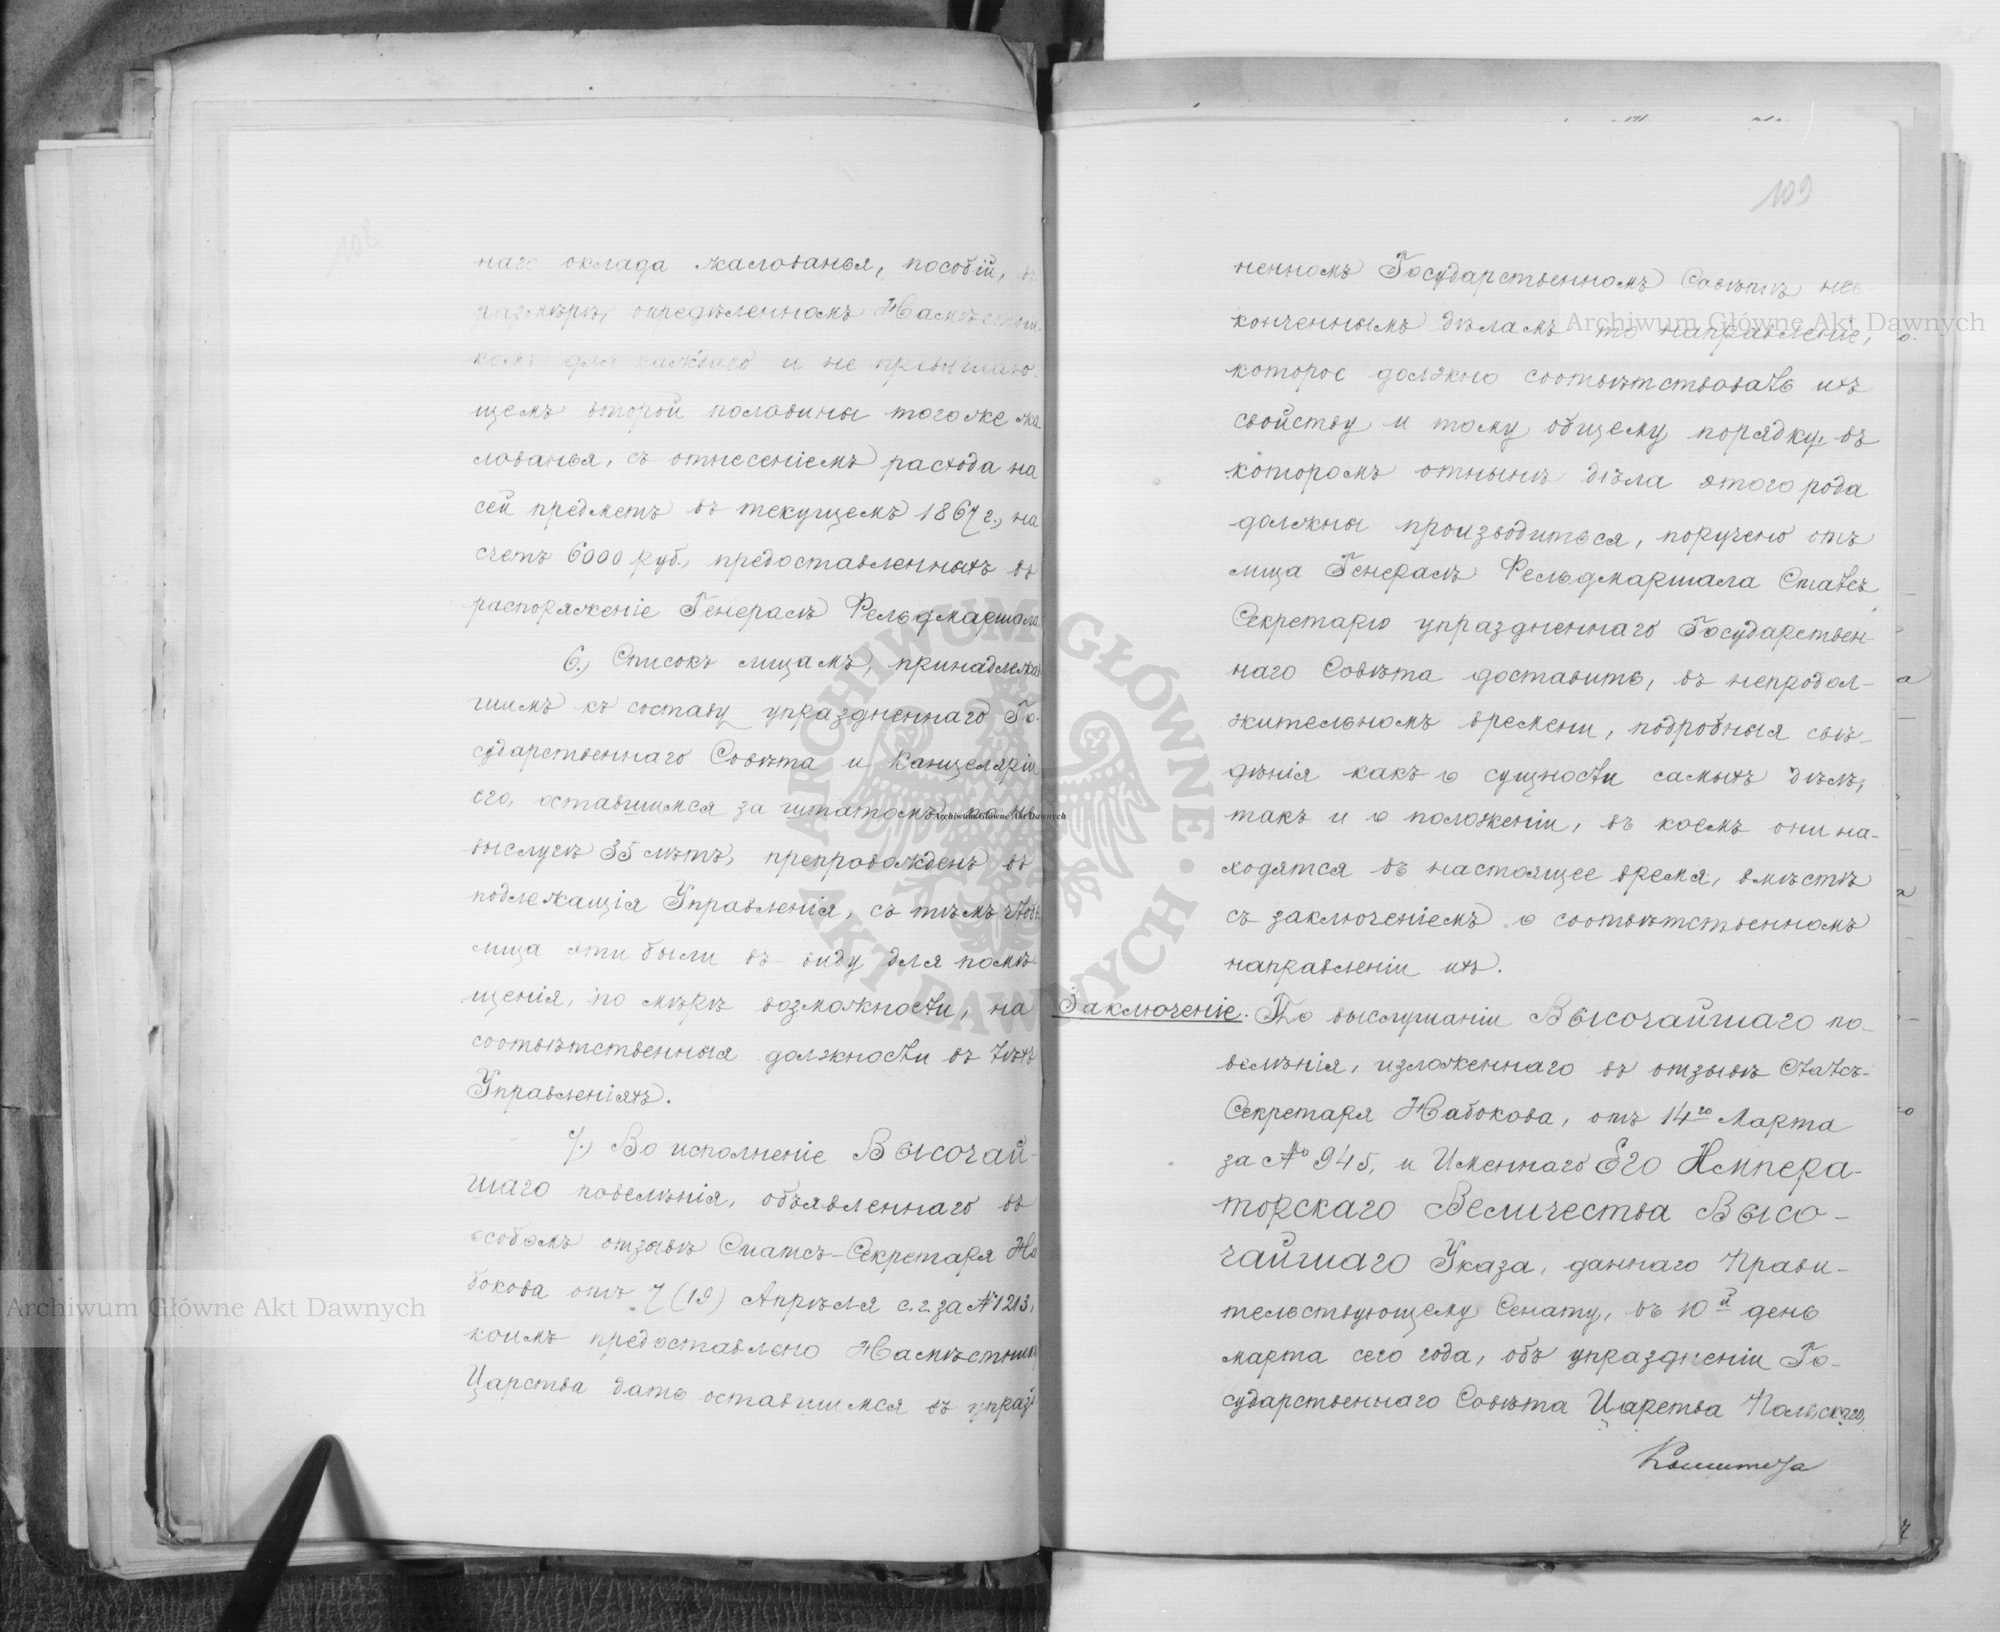 108
наго оклада жалованья, пособій, въ
размѣрѣ, опредѣленномъ Намѣстни-
комъ для каждаго и не превышаю-
щемъ второй половины того же жа-
лованья, съ отнесеніемъ расхода на
сей предметъ въ текущемъ 1867 г., на
счетъ 6000 руб., предоставленныхъ въ
распоряженіе Генералъ Фельдмаршала.
6.) Списокъ лицамъ, принадлежав
шимъ къ составу упраздненнаго Го-
сударственнаго Совѣта и Канцеляріи
его, оставшимся за штатомъ по не
выслугѣ 35 лѣтъ, препровожденъ въ
подлежащія Управленія, съ тѣмъ чтобы
лица эти были въ виду для помѣ
щенія, по мѣрѣ возможности, на
соотвѣтственныя должности въ тѣхъ
Управленіяхъ.
7.) Во исполненіе Высочай-
шаго повелѣнія, объявленнаго въ
особомъ отзывѣ Статсъ-Секретаря На
бокова отъ 7 (19) Апрѣля с. г. за № 1213,
коимъ предоставлено Намѣстнику
Царства дать оставшимся въ упразд
109
ненномъ Государственномъ Совѣтѣ нео
конченнымъ дѣламъ то направленіе,
которое должно соотвѣтствовать ихъ
свойству и тому общему порядку, въ
которомъ отнынѣ дѣла этого рода
должны производиться, поручено отъ
лица Генералъ Фельдмаршала Статсъ
Секретарю упраздненнаго Государствен-
наго Совѣта доставить, въ непродол-
жительномъ времени, подробныя свѣ-
дѣнія какъ о сущности самыхъ дѣлъ,
такъ и о положеніи, въ коемъ они на-
ходятся въ настоящее время, вмѣстѣ
съ заключеніемъ о соотвѣтственномъ
направленіи ихъ.
Заключеніе. По выслушаніи Высочайшаго по-
велѣнія, изложеннаго въ отзывѣ Статсъ-
Секретаря Набокова, отъ 14го Марта
за № 945, и Именнаго Его Импера-
торскаго Величества Высо-
чайшаго Указа, даннаго Прави-
тельствующему Сенату, въ 10й день
марта сего года, объ упраздненіи Го-
сударственнаго Совѣта Царства Польскаго,
Комитета
Archiwum Główne Akt Dawnych
Archiwum Główne Akt Dawnych
Archiwum Główne Akt Dawnych
ARCHIWUM GŁÓWNE AKT DAWNYCH